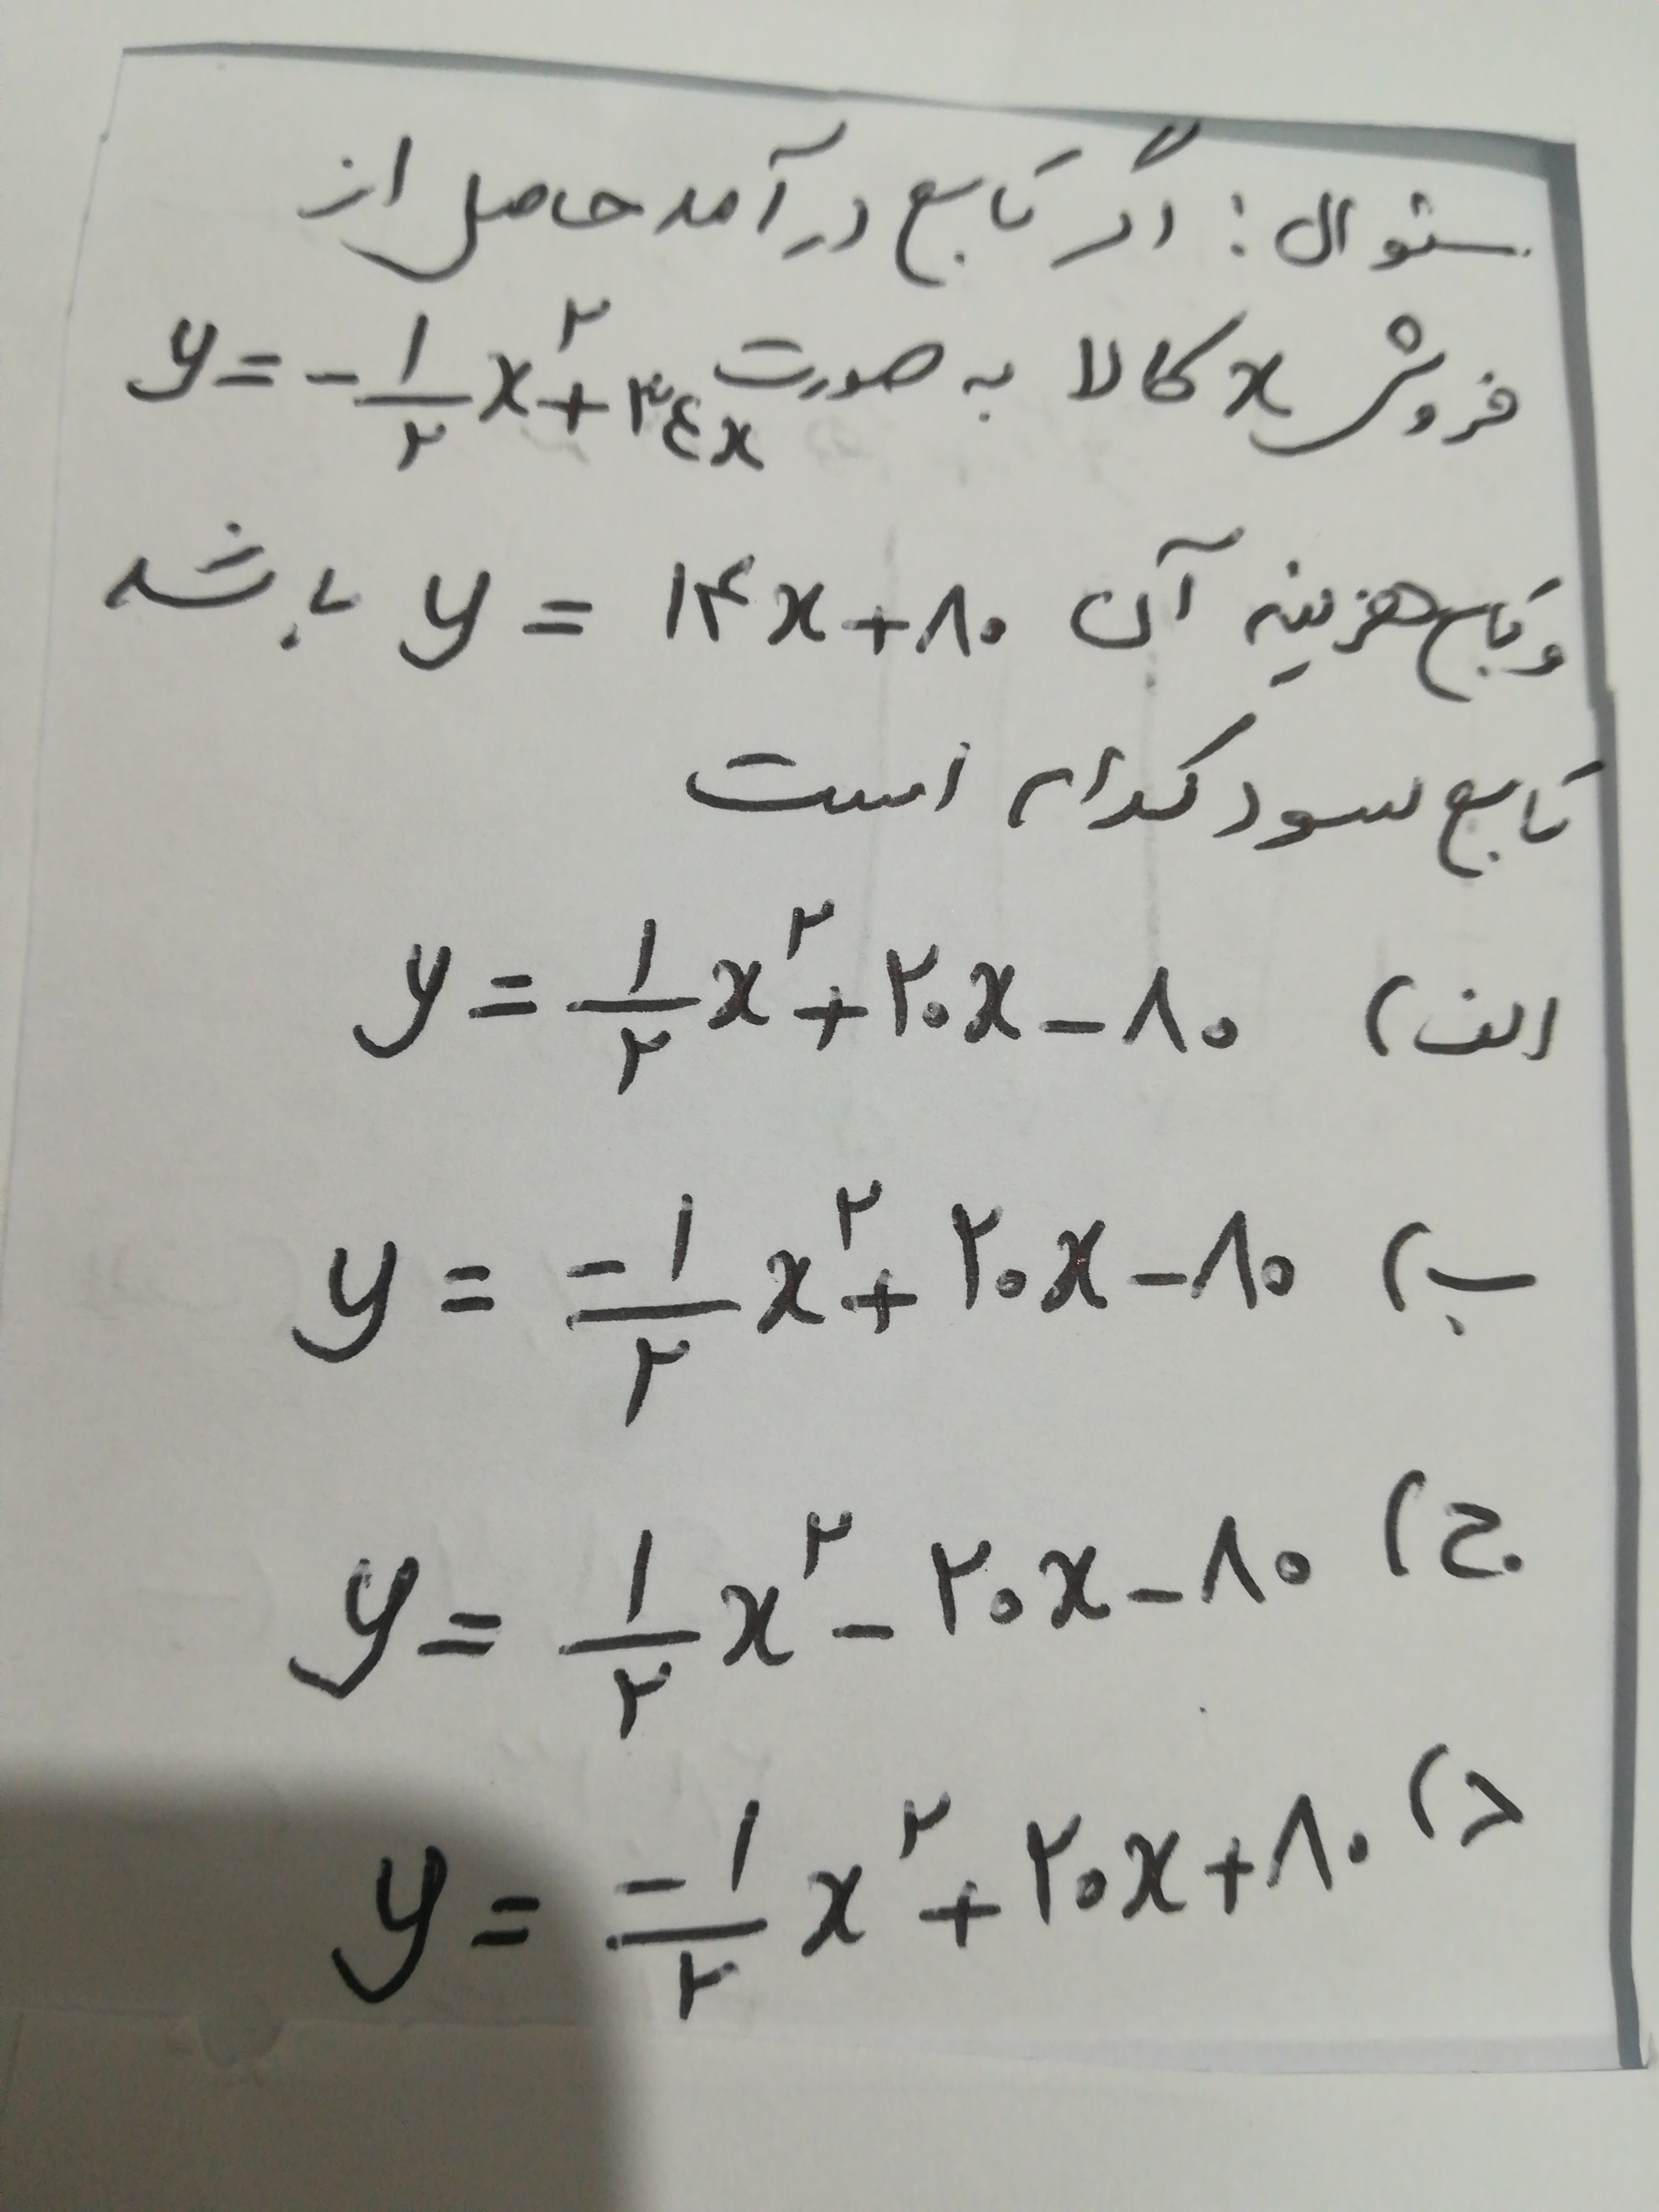 سئوال: اگر تابع درآمد حاصل از
فروش x کالا به صورت y = -۱/۲ x^۲ + ۳٤x
و تابع هزینه آن y = ۱۴x + ۸۰ باشد
تابع سود کدام است
الف) y = ۱/۲ x^۲ + ۲۰x - ۸۰
ب) y = -۱/۲ x^۲ + ۲۰x - ۸۰
ج) y = ۱/۲ x^۲ - ۲۰x - ۸۰
د) y = -۱/۲ x^۲ + ۲۰x + ۸۰